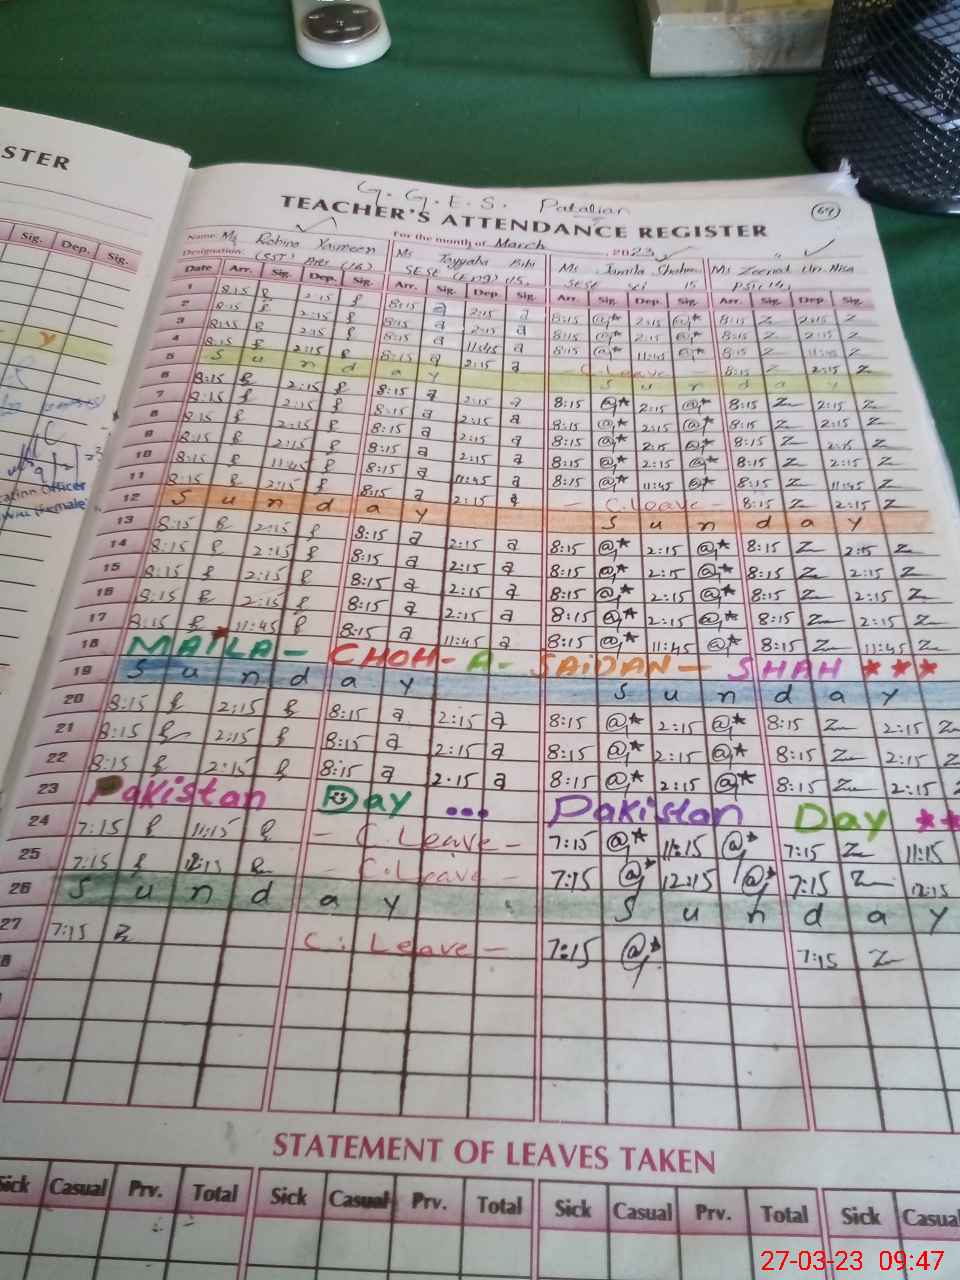 STER
G. G. E. S. Patalian
TEACHER'S ATTENDANCE REGISTER
64
For the month of March, 2023
Name: Ms Robina Yasmeen Ms Tayyaba Bibi Ms Jamila Shaheen Ms Zeenat Un Nisa
Designation: (SST) Arts (16) SESE (Eng) 15, SESE Sci 15 PST 14,
Sig. Dep. Sig.
Date Arr. Sig. Dep. Sig. Arr. Sig. Dep. Sig. Arr. Sig. Dep. Sig. Arr. Sig. Dep. Sig.
1 8:15 2:15 8:15 a 2:15 a 8:15 @* 2:15 @* 8:15 Z 2:15 Z
2 8:15 2:15 8:15 a 2:15 a 8:15 @* 2:15 @* 8:15 Z 2:15 Z
3 8:15 2:15 8:15 a 11:45 a 8:15 @* 11:45 @* 8:15 Z 11:45 Z
4 8:15 2:15 8:15 a 2:15 a - C.Leave - 8:15 Z 2:15 Z
5 S u n d a y S u n d a y
6 8:15 2:15 8:15 a 2:15 a 8:15 @* 2:15 @* 8:15 Z 2:15 Z
7 8:15 2:15 8:15 a 2:15 a 8:15 @* 2:15 @* 8:15 Z 2:15 Z
8 8:15 2:15 8:15 a 2:15 a 8:15 @* 2:15 @* 8:15 Z 2:15 Z
9 8:15 2:15 8:15 a 2:15 a 8:15 @* 2:15 @* 8:15 Z 2:15 Z
10 8:15 11:45 8:15 a 11:45 a 8:15 @* 11:45 @* 8:15 Z 11:45 Z
11 8:15 2:15 8:15 a 2:15 a - C.Leave 8:15 Z 2:15 Z
12 S u n d a y S u n d a y
13 8:15 2:15 8:15 a 2:15 a 8:15 @* 2:15 @* 8:15 Z 2:15 Z
14 8:15 2:15 8:15 a 2:15 a 8:15 @* 2:15 @* 8:15 Z 2:15 Z
15 8:15 2:15 8:15 a 2:15 a 8:15 @* 2:15 @* 8:15 Z 2:15 Z
16 8:15 2:15 8:15 a 2:15 a 8:15 @* 2:15 @* 8:15 Z 2:15 Z
17 8:15 11:45 8:15 a 11:45 a 8:15 @* 11:45 @* 8:15 Z 11:45 Z
18 MAILA - CHOH - A - SAIDAN - SHAH ★★★
19 S u n d a y S u n d a y
20 8:15 2:15 8:15 a 2:15 a 8:15 @* 2:15 @* 8:15 Z 2:15 Z
21 8:15 2:15 8:15 a 2:15 a 8:15 @* 2:15 @* 8:15 Z 2:15
22 8:15 2:15 8:15 a 2:15 a 8:15 @* 2:15 @* 8:15 Z 2:15
23 Pakistan Day ... Pakistan Day ★★
24 7:15 11:15 - C.Leave - 7:15 @* 11:15 @* 7:15 Z 11:15
25 7:15 12:15 - C.Leave - 7:15 @* 12:15 @* 7:15 Z 12:15
26 S u n d a y S u n d a y
27 7:15 C. Leave - 7:15 @* 7:15 Z
STATEMENT OF LEAVES TAKEN
Sick Casual Prv. Total Sick Casual Prv. Total Sick Casual Prv. Total Sick Casual
27-03-23 09:47